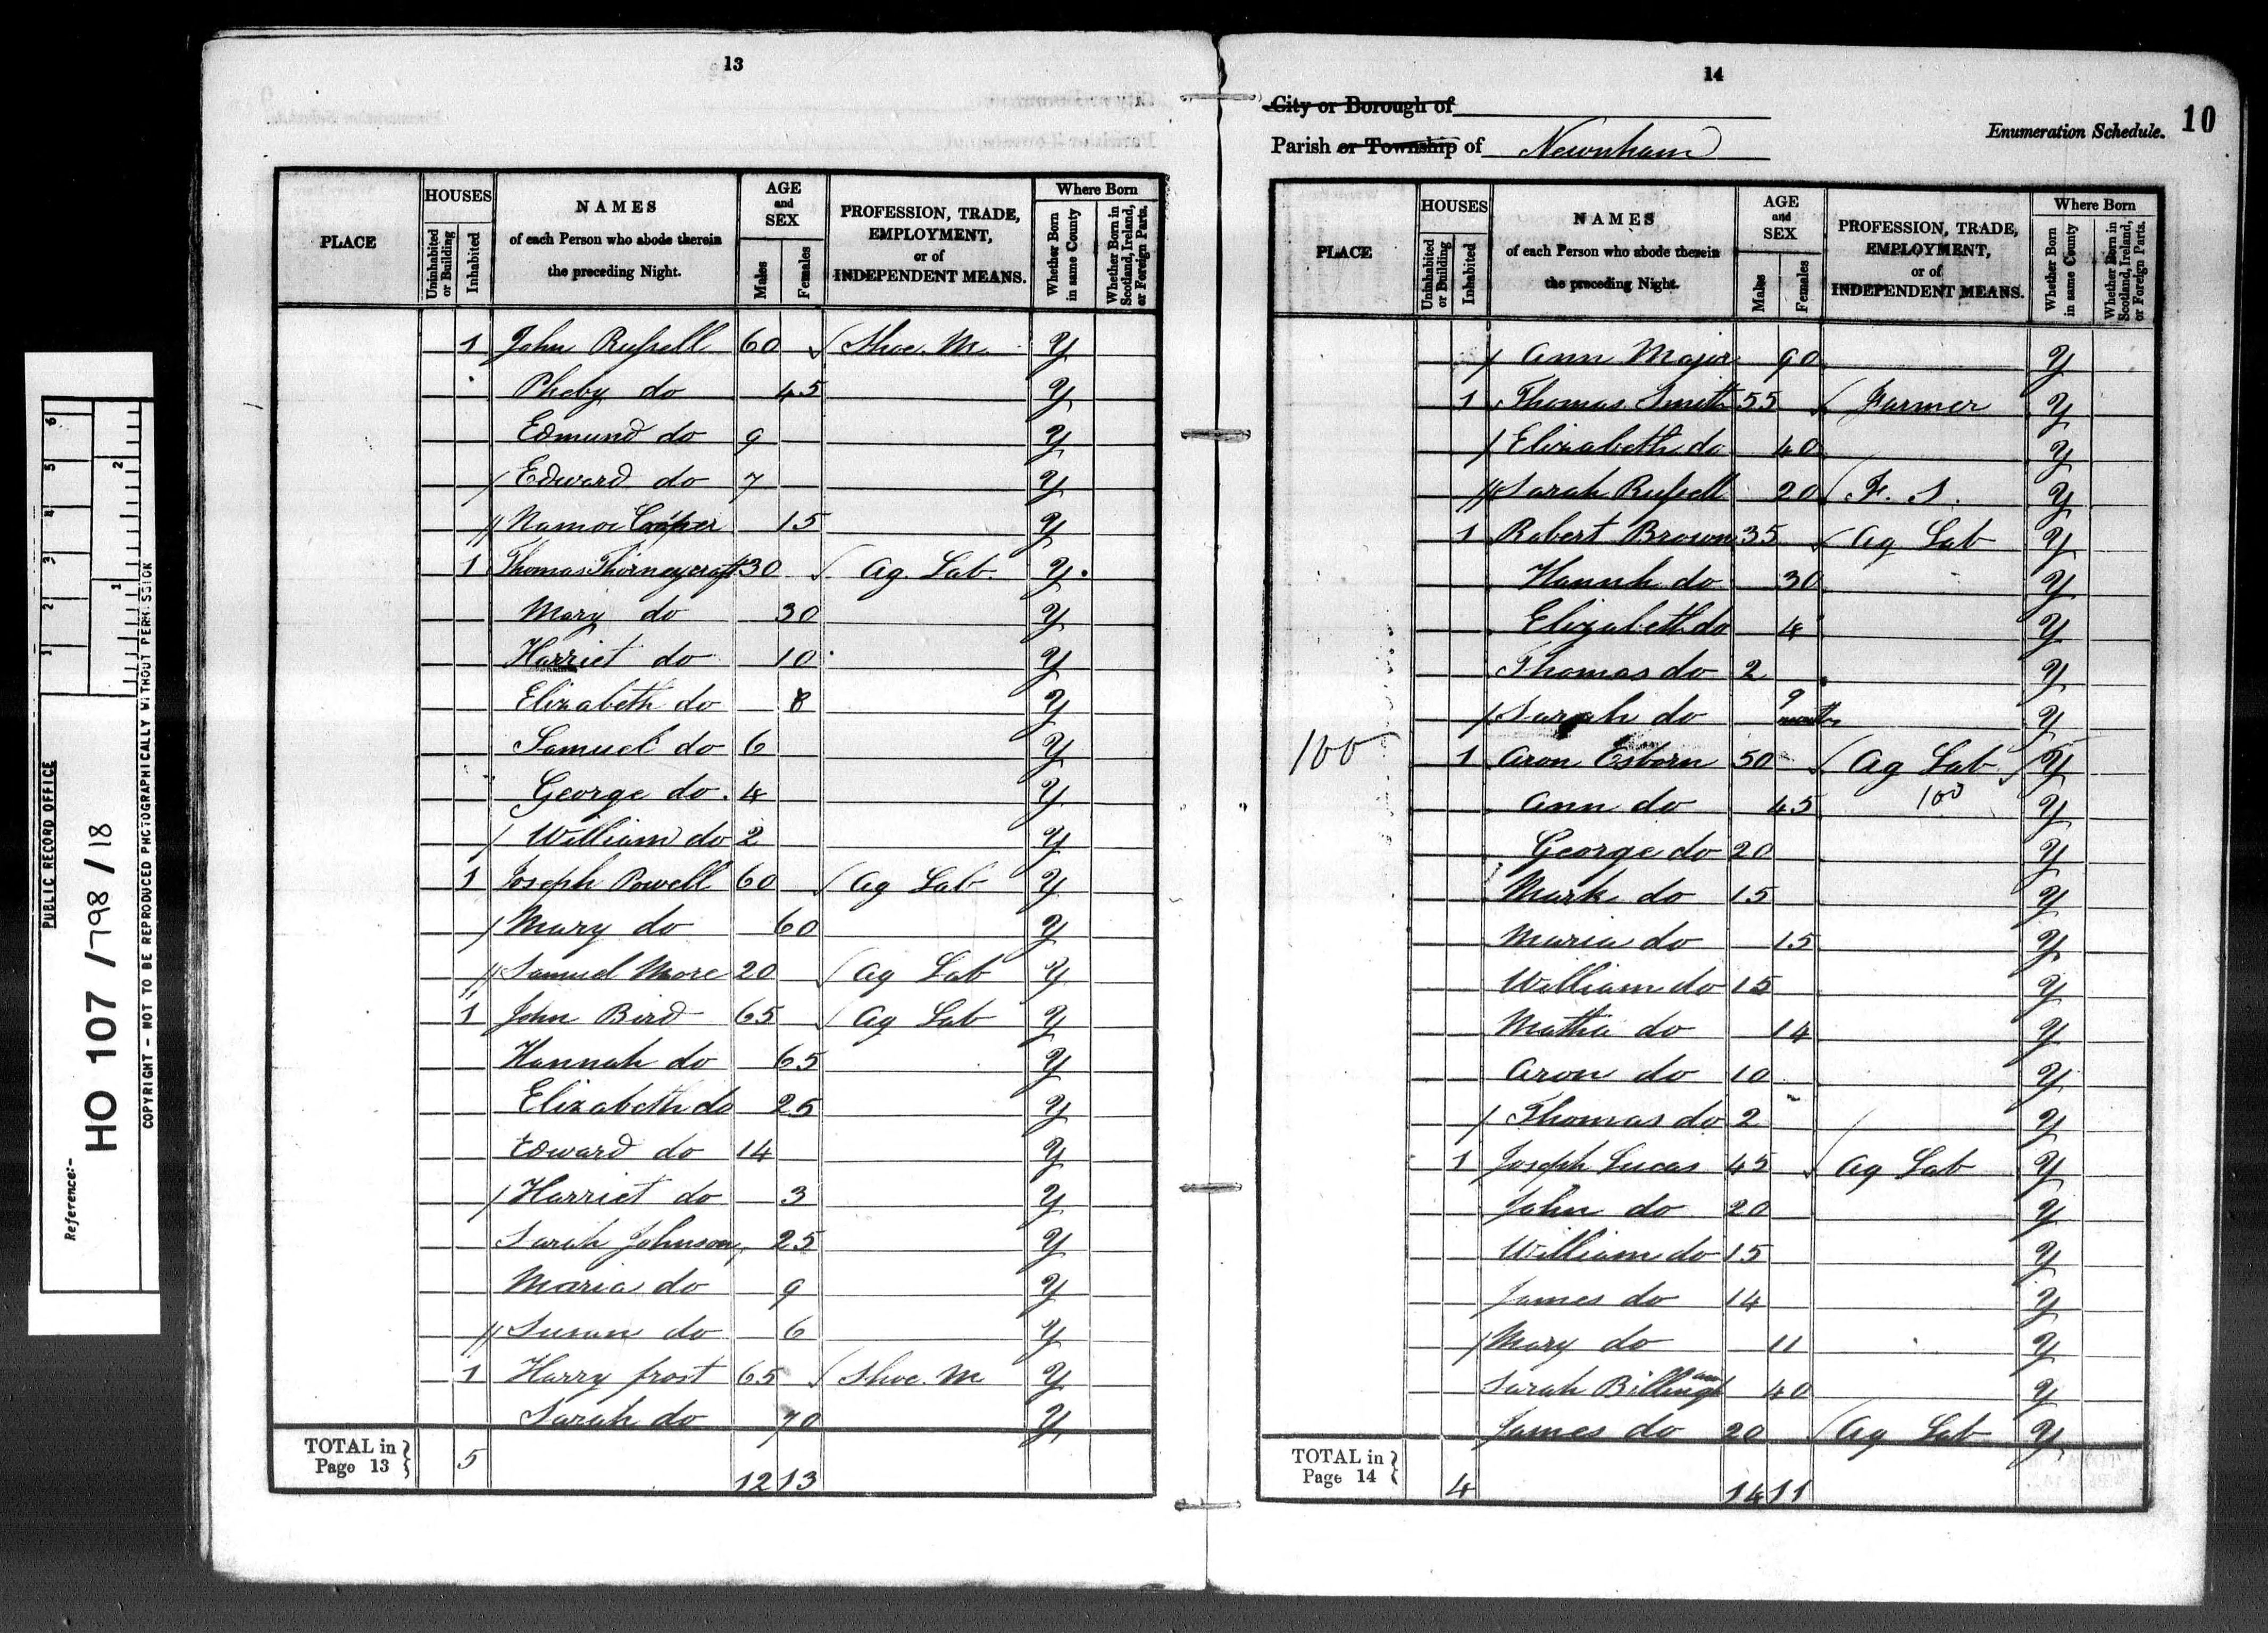 13
HOUSES
NAMES
AGE
and
SEX
PROFESSION, TRADE,
EMPLOYMENT,
or of
INDEPENDENT MEANS.
Where Born
PLACE
Uninhabited
or Building
Inhabited
of each Person who abode therein
the preceding Night.
Males
Females
Whether Born
in same County
Whether Born in
Scotland, Ireland,
or Foreign Parts.
1 John Russell 60 Shoe. M. Y
Pheby do 45 Y
Edmund do 9 Y
Edward do 7 Y
Cooper 15 Y
1 Thomas Thorneycraft 30 Ag. Lab. Y
Mary do 30 Y
Harriet do 10 Y
Elizabeth do 8 Y
Samuel do 6 Y
George do. 4 Y
William do 2 Y
1 Joseph Powell 60 Ag Lab Y
Mary do 60 Y
Samuel More 20 Ag Lab Y
1 John Bird 65 Ag Lab Y
Hannah do 65 Y
Elizabeth do 25 Y
Edward do 14 Y
Harriet do 3 Y
Sarah Johnson 25 Y
Maria do 9 Y
Susan do 6 Y
1 Harry frost 65 Shoe. M Y
Sarah do 70 Y
TOTAL in
Page 13
5 12 13
14
City or Borough of
Parish or Township of Newnham
Enumeration Schedule. 10
HOUSES
NAMES
AGE
and
SEX
PROFESSION, TRADE,
EMPLOYMENT,
or of
INDEPENDENT MEANS.
Where Born
PLACE
Uninhabited
or Building
Inhabited
of each Person who abode therein
the preceding Night.
Males
Females
Whether Born
in same County
Whether Born in
Scotland, Ireland,
or Foreign Parts.
Ann Major 90 Y
1 Thomas Smith 55 Farmer Y
Elizabeth do 40 Y
Sarah Russell 20 F. S. Y
1 Robert Brown 35 Ag Lab Y
Hannh do 30 Y
Elizabeth do 4 Y
Thomas do 2 Y
Sarah do 9 months Y
100 1 Aron Esborn 50 Ag Lab Y
Ann do 45 100 Y
George do 20 Y
Mark do 15 Y
Maria do 15 Y
William do 15 Y
Matha do 14 Y
Aron do 10 Y
Thomas do 2 Y
1 Joseph Lucas 45 Ag Lab Y
John do 20 Y
William do 15 Y
James do 14 Y
Mary do 11 Y
Sarah 40 Y
James do 20 Ag Lab Y
TOTAL in
Page 14
4 14 11
PUBLIC RECORD OFFICE
Reference:-
HO 107 / 798 / 18
COPYRIGHT - NOT TO BE REPRODUCED PHOTOGRAPHICALLY WITHOUT PERMISSION
1 2 3 4 5 6
1 2